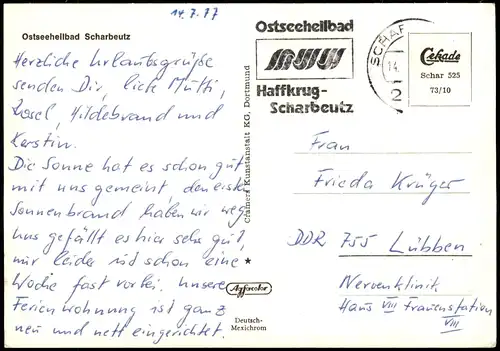 14.7.77
Ostseeheilbad Scharbeutz
Herzliche Urlaubsgrüße
senden Dir, liebe Mutti,
Rosel, Hildebrand und
Kerstin.
Die Sonne hat es schon gut
mit uns gemeint, den ersten
Sonnenbrand haben wir weg.
Uns gefällt es hier sehr gut,
nur leider ist schon eine
Woche fast vorbei. Unsere
Ferienwohnung ist ganz
neu und nett eingerichtet.
Cramers Kunstanstalt KG, Dortmund
Agfacolor
Deutsch-
Mexichrom
Ostseeheilbad
Haffkrug-
Scharbeutz
SCHAR
14.
2
Cekade
Schar 525
73/10
Frau
Frieda Krüger
DDR 755 Lübben
Nervenklinik,
Haus VIII Frauenstation
VIII